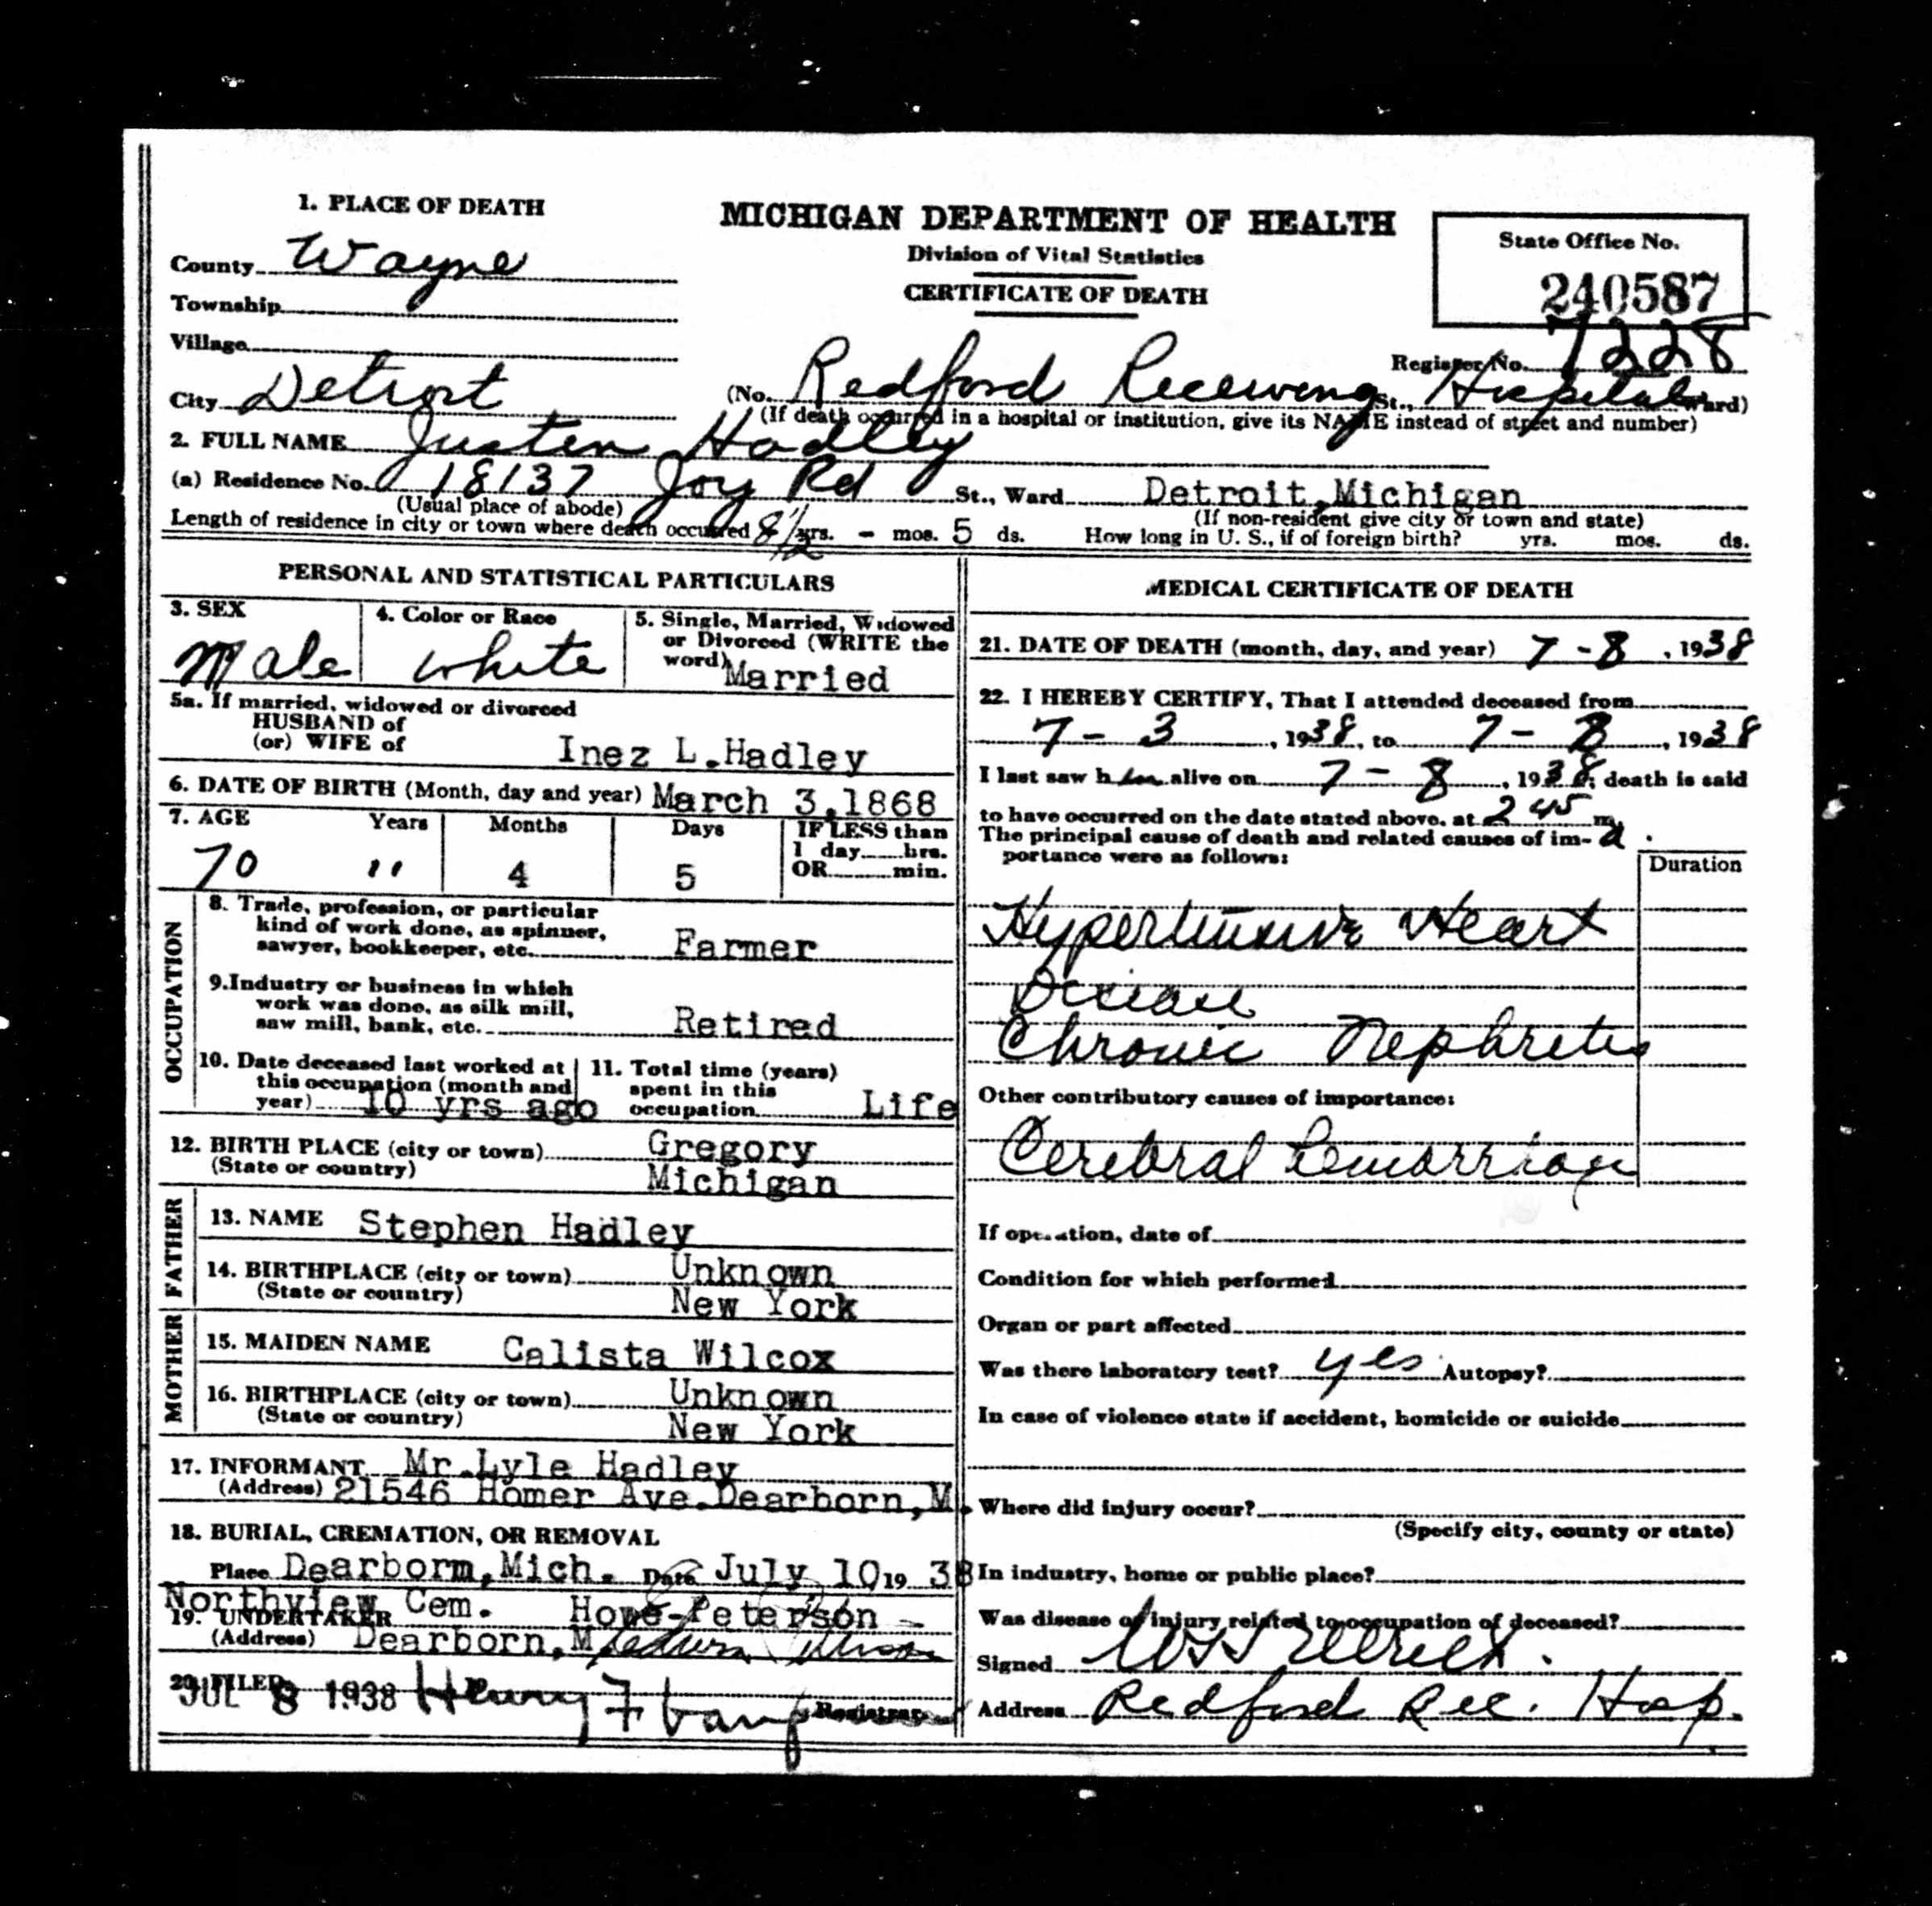 1. PLACE OF DEATH
County Wayne
Township
Village
City Detroit
MICHIGAN DEPARTMENT OF HEALTH
Division of Vital Statistics
CERTIFICATE OF DEATH
State Office No.
240587
Register No. 7228
(No. Redford Receiving St., Hospital Ward)
(If death occurred in a hospital or institution, give its NAME instead of street and number)
2. FULL NAME Justen Hadley
(a) Residence No. 18137 Joy Rd St., Ward Detroit, Michigan
(Usual place of abode) (If non-resident give city or town and state)
Length of residence in city or town where death occurred 8 1/2 yrs. - mos. 5 ds. How long in U. S., if of foreign birth? yrs. mos. ds.
PERSONAL AND STATISTICAL PARTICULARS
3. SEX
Male
4. Color or Race
white
5. Single, Married, Widowed
or Divorced (WRITE the
word) Married
5a. If married, widowed or divorced
HUSBAND of
(or) WIFE of Inez L. Hadley
6. DATE OF BIRTH (Month, day and year) March 3, 1868
7. AGE Years Months Days IF LESS than
1 day hrs.
OR min.
70 " 4 5
OCCUPATION
8. Trade, profession, or particular
kind of work done, as spinner,
sawyer, bookkeeper, etc. Farmer
9. Industry or business in which
work was done, as silk mill,
saw mill, bank, etc. Retired
10. Date deceased last worked at
this occupation (month and
year) 10 yrs ago
11. Total time (years)
spent in this
occupation Life
12. BIRTH PLACE (city or town) Gregory
(State or country) Michigan
FATHER
13. NAME Stephen Hadley
14. BIRTHPLACE (city or town) Unknown
(State or country) New York
MOTHER
15. MAIDEN NAME Calista Wilcox
16. BIRTHPLACE (city or town) Unknown
(State or country) New York
17. INFORMANT Mr. Lyle Hadley
(Address) 21546 Homer Ave. Dearborn, M.
18. BURIAL, CREMATION, OR REMOVAL
Place Dearborn, Mich. Date July 10 19 38
Northview Cem.
19. UNDERTAKER Howe-Peterson
(Address) Dearborn, M
20. FILED JUL 8 1938 Henry F Registrar
MEDICAL CERTIFICATE OF DEATH
21. DATE OF DEATH (month, day, and year) 7 - 8, 1938
22. I HEREBY CERTIFY, That I attended deceased from
7 - 3, 1938, to 7 - 8, 1938
I last saw him alive on 7 - 8, 1938; death is said
to have occurred on the date stated above, at 2 45 m.
The principal cause of death and related causes of im- a
portance were as follows:
Duration
Hypertensive Heart
Disease
Chronic Nephritis
Other contributory causes of importance:
Cerebral hemorrhage
If operation, date of
Condition for which performed
Organ or part affected
Was there laboratory test? yes Autopsy?
In case of violence state if accident, homicide or suicide
Where did injury occur?
(Specify city, county or state)
In industry, home or public place?
Was disease or injury related to occupation of deceased?
Signed
Address Redford Rec. Hosp.